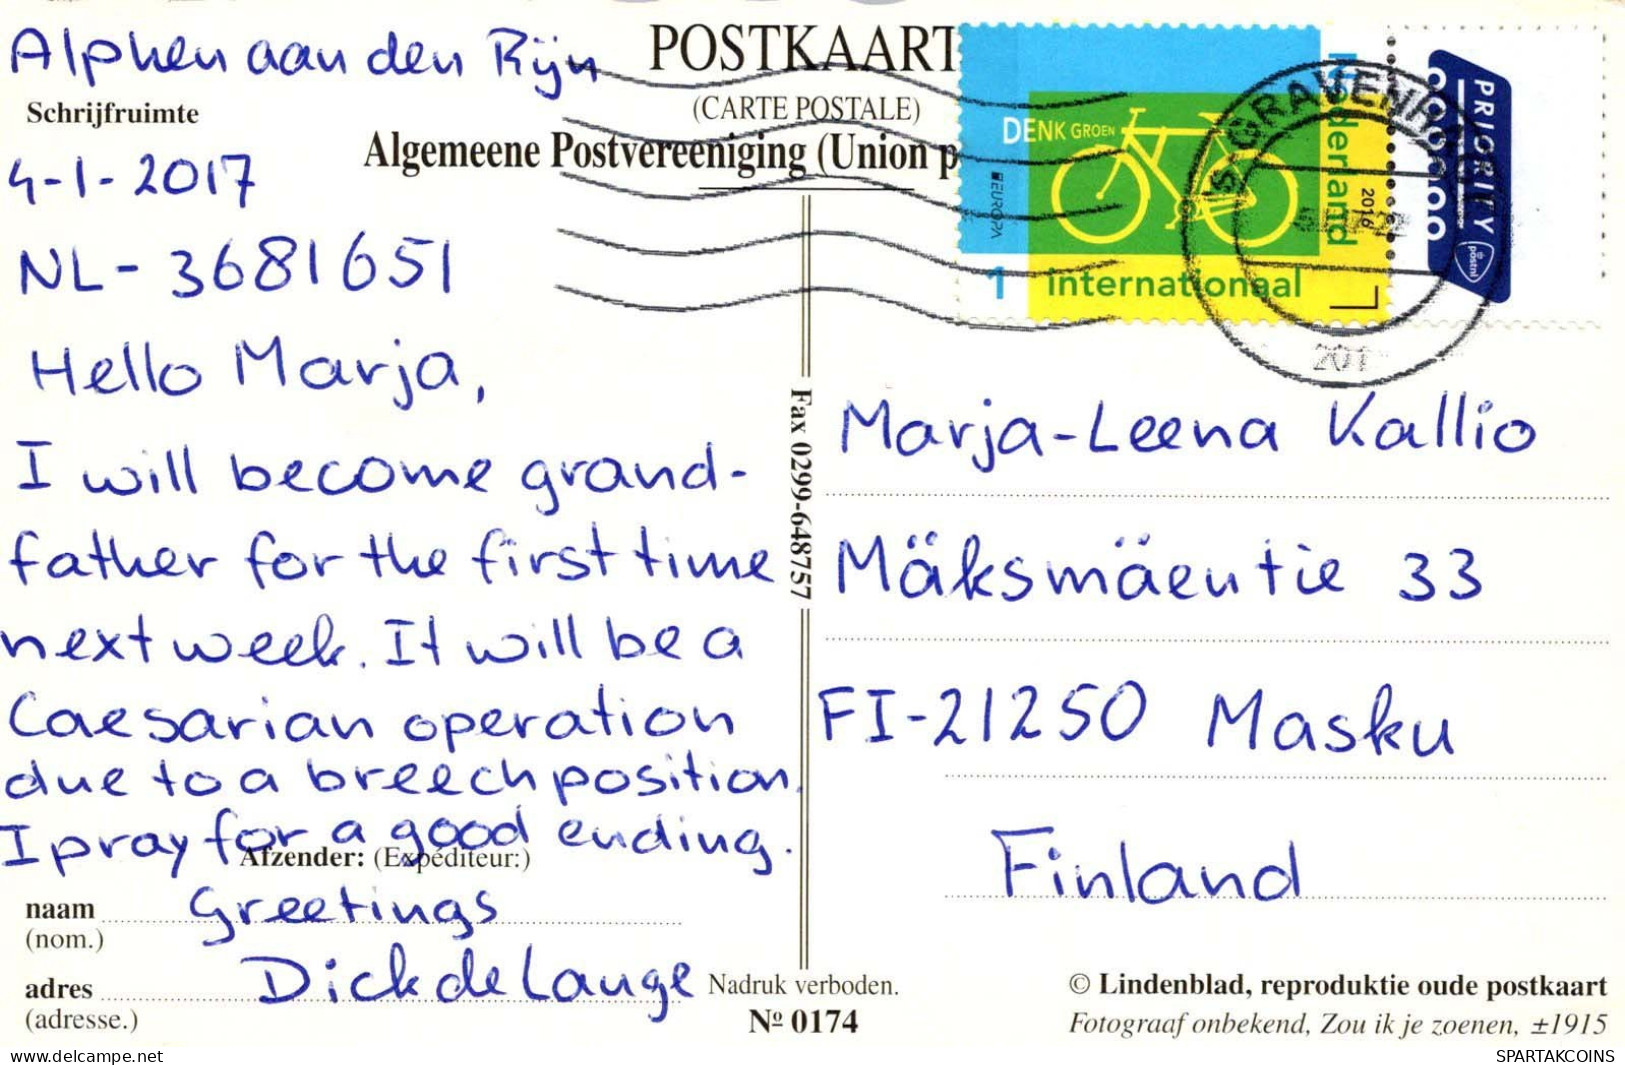 Alphen aan den Rijn
POSTKAART
(CARTE POSTALE)
Schrijfruimte
Algemeene Postvereeniging (Union p
4-1-2017
NL-3681651
Hello Marja,
I will become grand-
father for the first time
next week. It will be a
Caesarian operation
due to a breech position.
I pray for a good ending.
Afzender: (Expéditeur:)
naam
(nom.)
Greetings
adres
(adresse.)
Dick de Lange
Fax 0299-648757
DENK GROEN
EUROPA
1 internationaal
Nederland
2016
PRIORITY
postnl
'S-GRAVENHAGE
201
Marja-Leena Kallio
Mäksmäentie 33
FI-21250 Masku
Finland
Nadruk verboden.
Nº 0174
© Lindenblad, reproduktie oude postkaart
Fotograaf onbekend, Zou ik je zoenen, ±1915
www.delcampe.net
SPARTAKCOINS